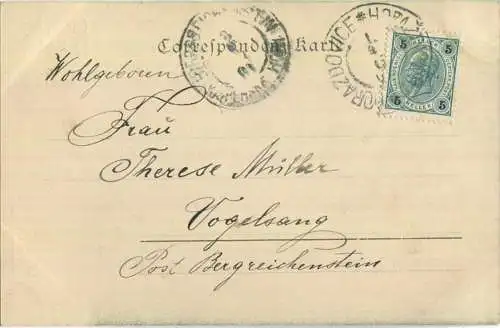 Correspondenz-Karte
HORAŽĎOVICE * HORAŽ
5 5
5 HELLER 5
Wohlgeboren
Frau
Therese Müller
Vogelsang
Post Bergreichenstein